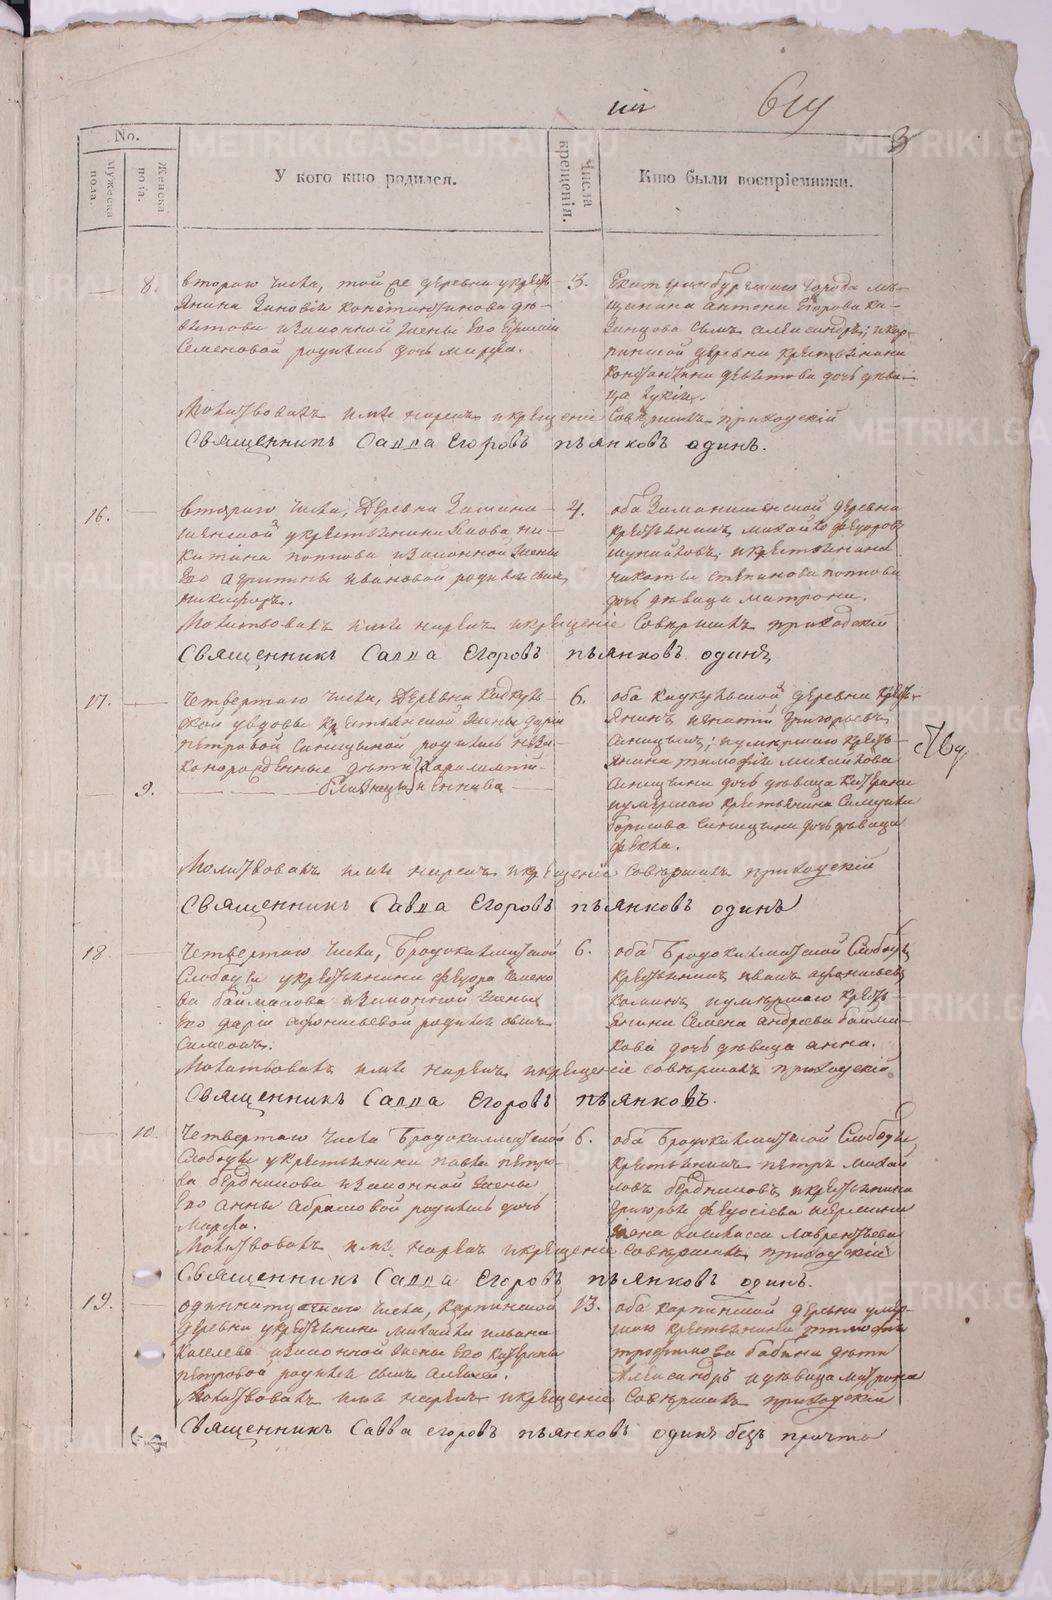 No.
Мужеска пола.
Женска пола.
У кого кто родился.
Числа крещенія.
Кто были воспріемники.
8. втораго числа, той же деревни у кресть-
янина Зиновія Константинова де-
вятова изаконной жены Его
Семеновой родилась дочь марфа.
3. Екатеринбургскаго города ме-
щанина антона Егорова ка-
занцова сынъ александръ; и кар-
пинской деревни крестьянина
константина девятова дочь деви-
ца
Молитвовалъ имя нарекъ и крещеніе Совершилъ приходскій
Священникъ Савва Егоровъ пьянковъ одинъ.
16. втораго числа, Деревни
у крестьянина Якова ни-
китина попова изаконной жены
Его ивановой родился сынъ
никифоръ.
4. оба деревни
крестьянинъ михайло федоровъ
и крестьянина
степанова попова
дочь девица матрона.
Молитвовалъ имя нарекъ и крещеніе Совершилъ приходскій
Священникъ Савва Егоровъ пьянковъ одинъ
17. Четвертаго числа, Деревни
у вдовы крестьянской жены даріи
петровой синицыной родились неза-
конорожденные дети Харалампій
9. близнецы и
6. оба деревни кресть-
янинъ игнатій григорьевъ
синицынъ; и умершаго кресть-
янина тимофея михайлова
синицына дочь девица катерина
и умершаго крестьянина
борисова синицына дочь девица
фекла.
Молитвовалъ имя нарекъ и крещеніе совершилъ приходскій
Священникъ Савва Егоровъ пьянковъ одинъ
18. Четвертаго числа, Бродокалмацкой
Слободы у крестьянина федора семено
ва изаконной жены
Его даріи афонасьевой родился сынъ
Симеонъ.
6. оба Бродокалмацкой Слободы
крестьянинъ иванъ афонасьевъ
и умершаго кресть
янина Семена андреева
дочь девица анна.
Молитвовалъ имя нарекъ и крещеніе совершилъ приходскій
Священникъ Савва Егоровъ пьянковъ.
10. Четвертаго числа Бродокалмацкой
Слободы у крестьянина павла петро-
ва бердникова изаконной жены
Его анны абрамовой родилась дочь
Марфа.
6. оба Бродокалмацкой Слободы
Крестьянинъ петръ михай
ловъ бердниковъ и крестьянина
григорья федосіева
жена лаврентьева
Молитвовалъ имя нарекъ и крещеніе совершилъ приходскій
Священникъ Савва Егоровъ пьянковъ одинъ.
19. одиннатцатаго числа, карпинской
деревни у крестьянина михайла
киселева изаконной жены Его катерины
петровой родился сынъ алексей.
13. оба карпинской деревни умер-
шаго крестьянина тимофея
трофимова бабина дети
Александръ и девица матрона
Молитвовалъ имя нарекъ и крещеніе совершилъ приходскій
Священникъ Савва егоровъ пьянковъ одинъ безъ причта
METRIKI.GASO-URAL.RU